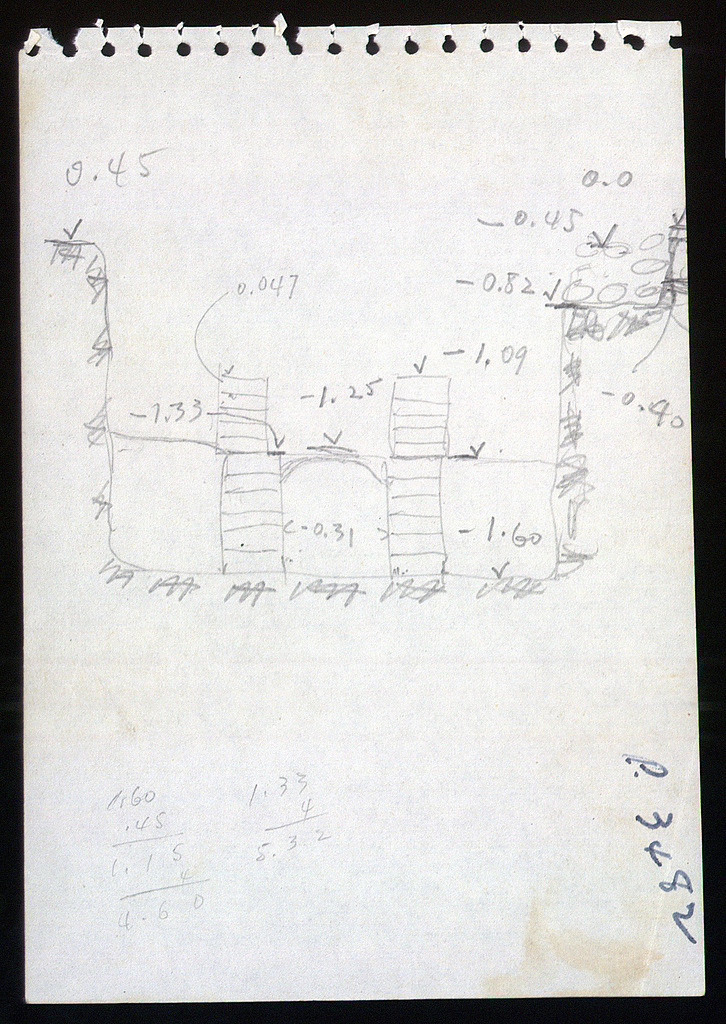 0.45
0.0
-0.45
-0.82
0.047
-1.09
-1.33
-1.25
-0.40
-0.31
-1.60
1.60
.45
1.15
4
4.60
1.33
4
5.32